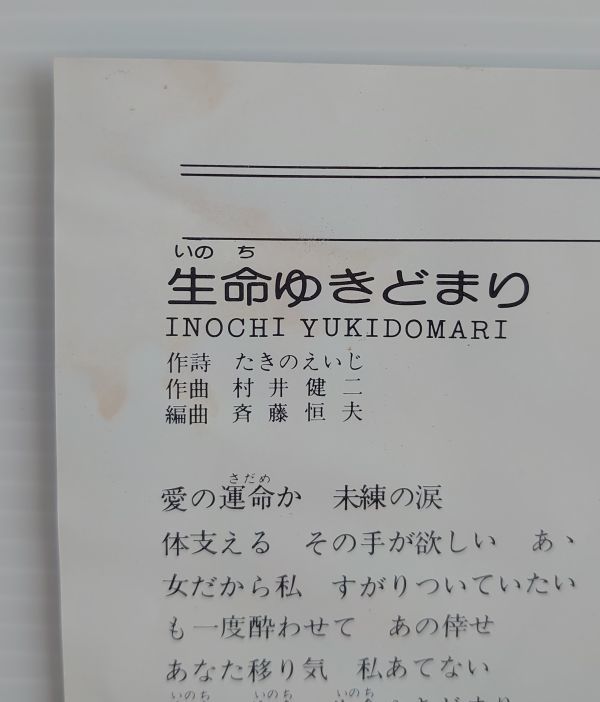 いのち
生命ゆきどまり
INOCHI YUKIDOMARI
作詩 たきのえいじ
作曲 村井健二
編曲 斉藤恒夫
さだめ
愛の運命か 未練の涙
体支える その手が欲しい あゝ
女だから私 すがりついていたい
も一度酔わせて あの倖せ
あなた移り気 私あてない
いのち いのち いのち